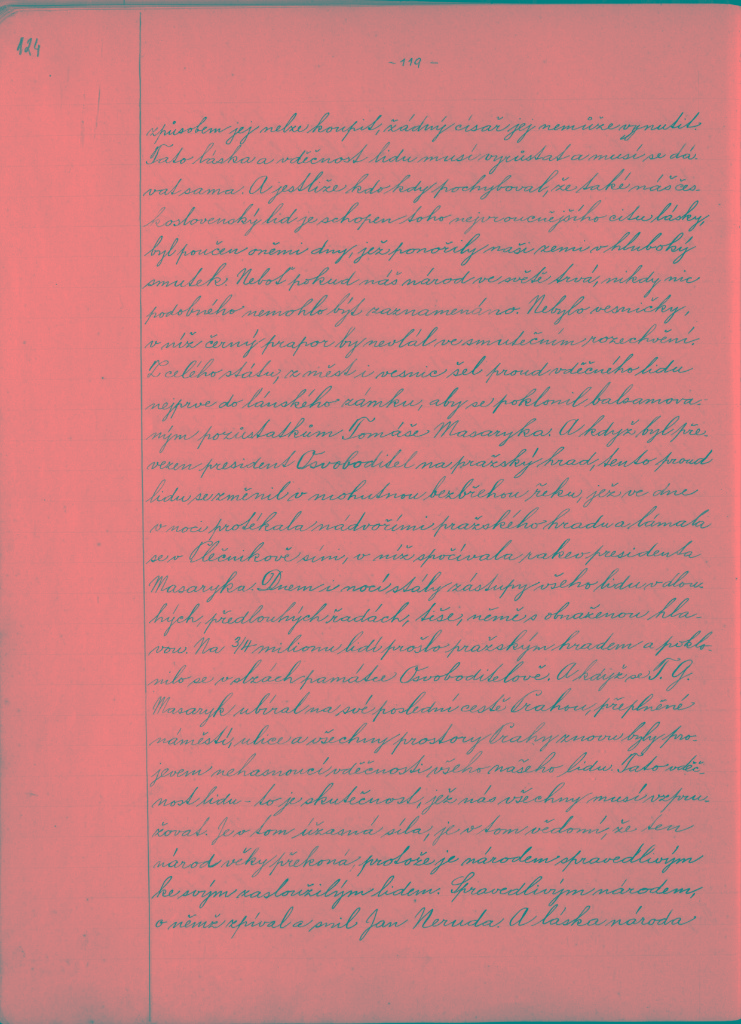 124
- 119 -
způsobem jej nelze koupit, žádný císař jej nemůže vynutit.
Tato láska a vděčnost lidu musí vyrůstat a musí se dá-
vat sama. A jestliže kdo kdy pochyboval, že také náš čes-
koslovenský lid je schopen toho nejvroucnějšího citu lásky,
byl poučen oněmi dny, jež ponořily naši zemi v hluboký
smutek. Neboť pokud náš národ ve světě trvá, nikdy nic
podobného nemohlo být zaznamenáno. Nebylo vesničky,
v níž černý prapor by nevlál ve smutečním rozechvění.
Z celého státu, z měst i vesnic šel proud vděčného lidu
nejprve do lánského zámku, aby se poklonil balsamova-
ným pozůstatkům Tomáše Masaryka. A když byl pře-
vezen president Osvoboditel na pražský hrad, tento proud
lidu se změnil v mohutnou bezbřehou řeku, jež ve dne
v noci protékala nádvořími pražského hradu a lámala
se v Plečnikově síni, v níž spočívala rakev presidenta
Masaryka. Dnem i nocí stály zástupy všeho lidu v dlou-
hých, předlouhých řadách, tiše, němě, s obnaženou hla-
vou. Na 3/4 milionu lidí prošlo pražským hradem a poklo-
nilo se v slzách památce Osvoboditelově. A když se T. G.
Masaryk ubíral na své poslední cestě Prahou, přeplněné
náměstí, ulice a všechny prostory Prahy znovu byly pro-
jevem nehasnoucí vděčnosti všeho našeho lidu. Tato vděč-
nost lidu - to je skutečnost, jež nás všechny musí vzpru-
žovat. Je v tom úžasná síla, je v tom vědomí, že ten
národ věky překoná protože je národem spravedlivým
ke svým zasloužilým lidem. Spravedlivým národem,
o němž zpíval a snil Jan Neruda. A láska národa